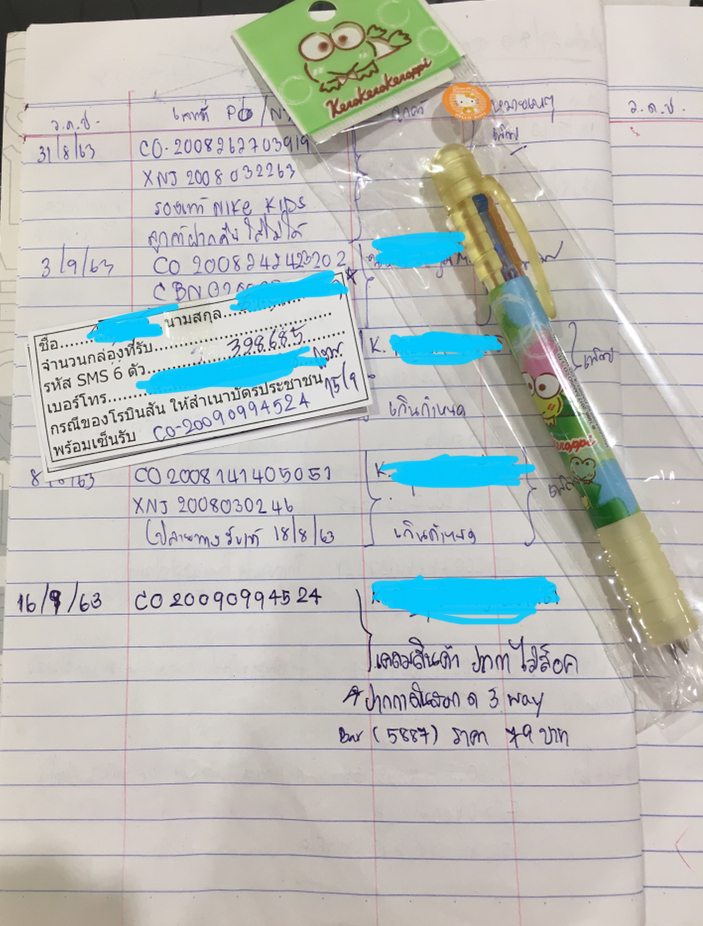 KeroKeroKeroppi
ว.ด.ป.
เลขที่ PO
หมายเหตุ
ว.ด.ป.
31/8/63
CO-2008262703919
XNJ 2008032263
รองเท้า NIKE KIDS
ลูกค้าฝากคืน ใส่ไม่ได้
3/9/63
CO 2008242423202
ชื่อ
นามสกุล
จำนวนกล่องที่รับ
รหัส SMS 6 ตัว 328685
เบอร์โทร
กรณีของโรบินสัน ให้สำเนาบัตรประชาชน 15/9
พร้อมเซ็นรับ CO-20090994524
K.
เกินกำหนด
/63
CO 2008141405051
K.
XNJ 2008030246
18/8/63
เกินกำหนด
16/9/63
CO 20090994524
เคลมสินค้า ปากกาไม่ล็อค
3 way
Bar (5887) ราคา 79 บาท